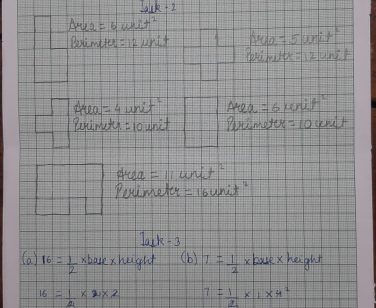 Task - 2
Area = 6 unit²
Perimeter = 12 unit
Area = 5 unit²
Perimeter = 12 unit
Area = 4 unit²
Perimeter = 10 unit
Area = 6 unit²
Perimeter = 10 unit
Area = 11 unit²
Perimeter = 16 unit²
Task - 3
(a) 16 = 1/2 × base × height (b) 7 = 1/2 × base × height
16 = 1/2 × 2 × 2 7 = 1/2 × 1 ×